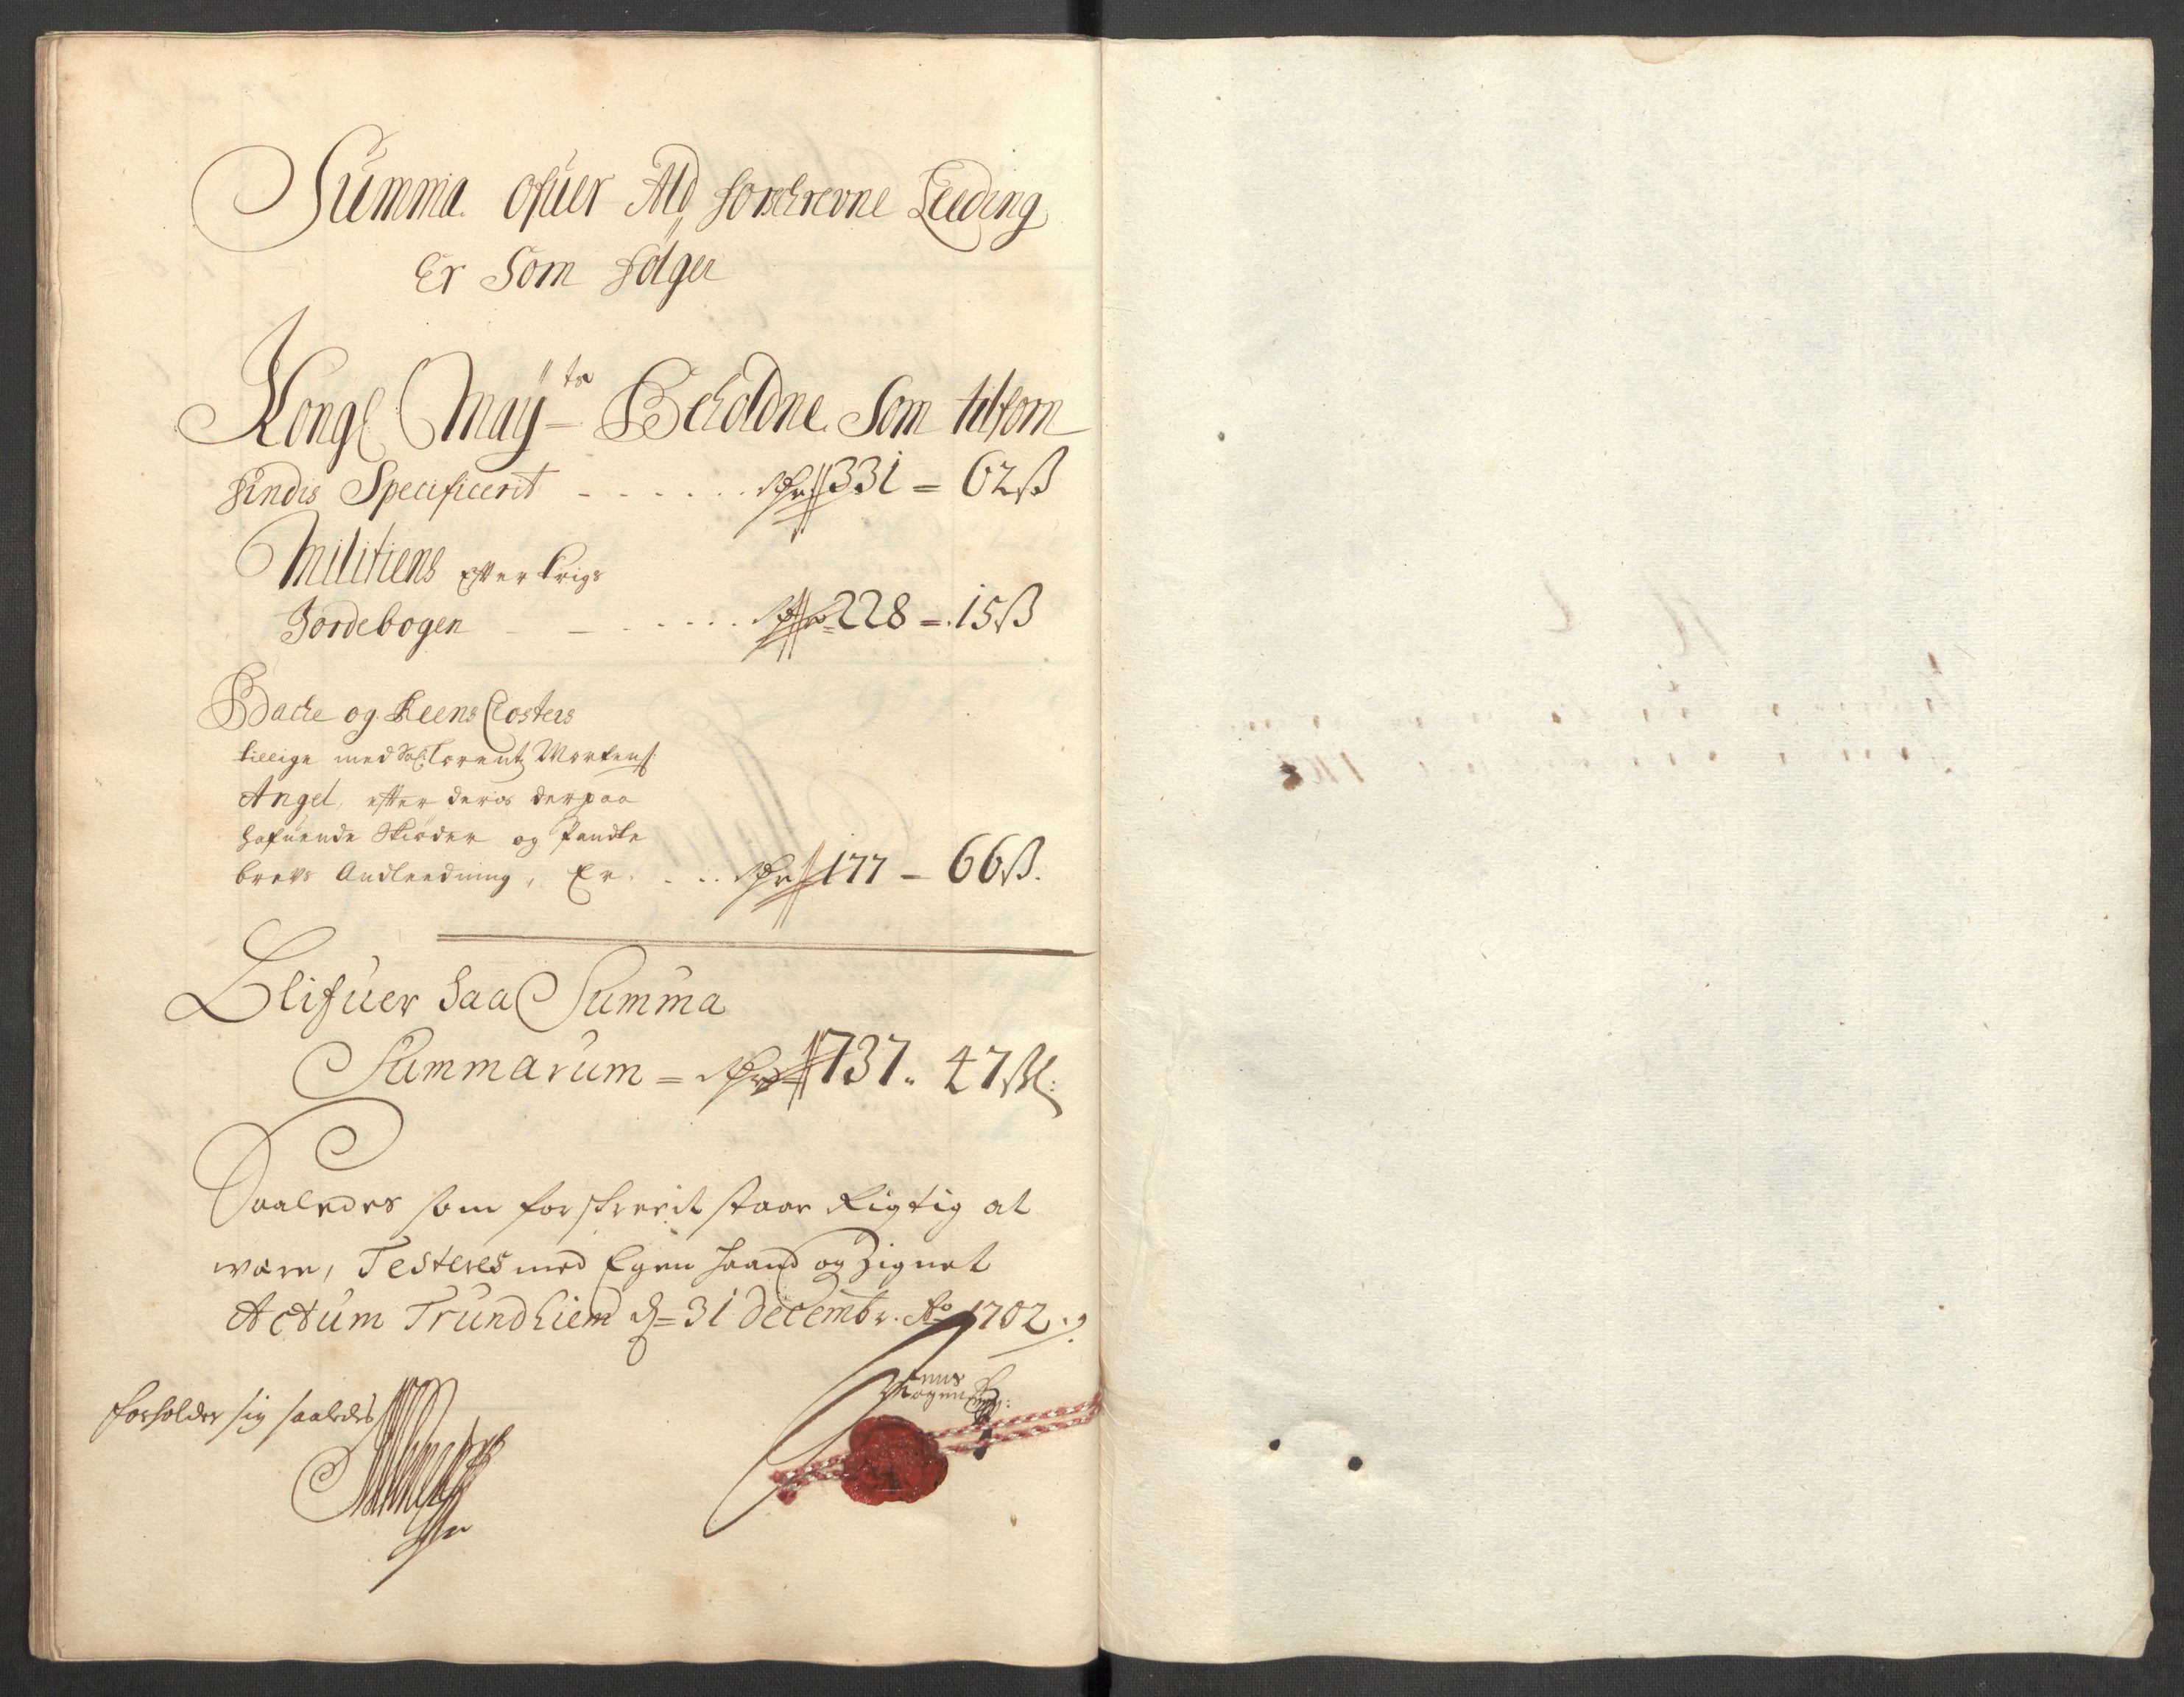 Summa ofuer Ald forschrevne Leeding
Er Som Følger
Kongl May:ts Beholdne Som tilforn
findis Specificerit - - - - - - - 331 = 62 ß
Militiens Efter Krigs
Jordebogen - - - - - - - 228 = 15 ß
Backe og Reens Closters
tillige med Sal: Lorentz Mortens:
Angel, efter deris derpaa
hafuende Skiøder og Pandte
brevs Andleedning, Er. . . . 177 - 66 ß.
Blifuer saa Summa
Summarum = 737. 47 ßl:
Saaledes som forschreevit staar Rigtig at
være, Testeres med Egen Haand og Zignet
Actum Trundhiem d= 31 Decembr. Ao 1702
forholder sig saaledes